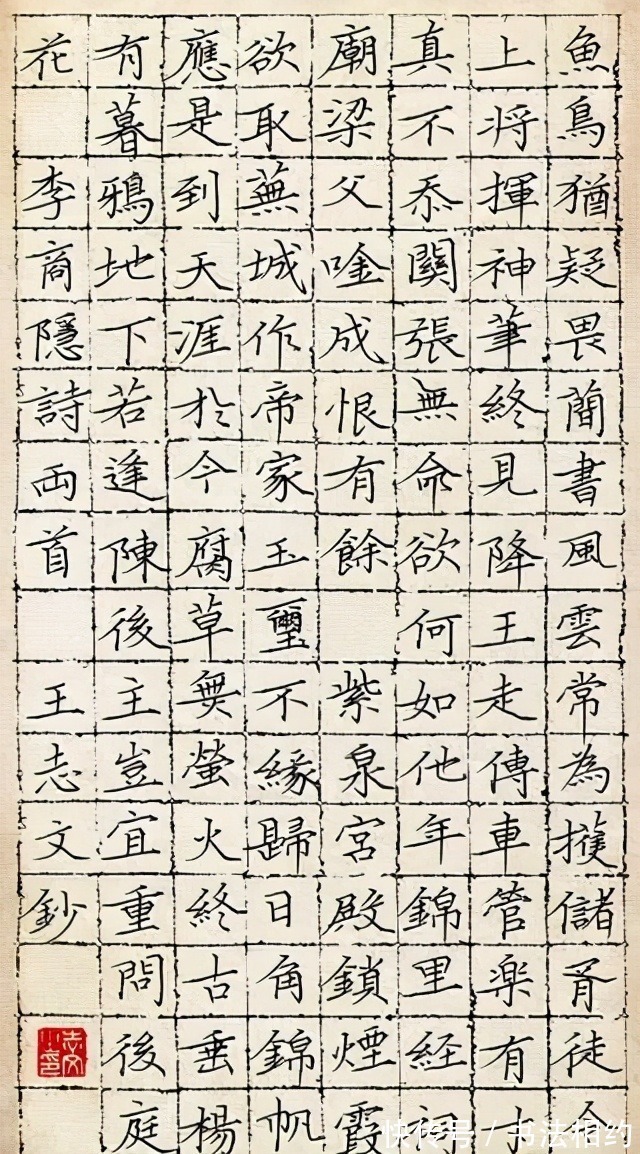 魚鳥猶疑畏蕑書風雲常為擭儲胥徒令
上將揮神筆終見降王走傳車管楽有才
真不忝關張無命欲何如他年錦里經祠
廟梁父唫成恨有餘 紫泉宮殿鎖煙霞
欲取蕪城作帝家玉璽不緣歸日角錦帆
應是到天涯於今腐草無螢火終古垂楊
有暮鴉地下若逢陳後主豈宜重問後庭
花 李商隱詩兩首 王志文鈔
快传号/书法相约